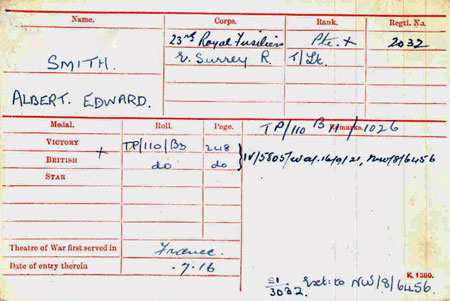 Name. Corps. Rank. Regtl. No.
23rd Royal Fusiliers Pte. x 2032
SMITH. E. Surrey R. T/Lt.
ALBERT. EDWARD.
Medal. Roll. Page. Remarks.
TP/110 B 1026
VICTORY x TP/110/B3 248
IV/5805/ 16/9/21, NW/8/6456
BRITISH do do
STAR
Theatre of War first served in France.
Date of entry therein . 7.16
K. 1380.
3032. Ext: to NW/8/6456.